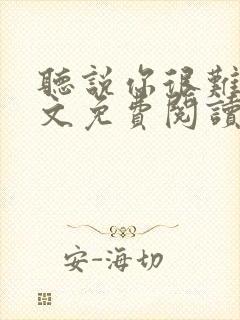 聽說你很難
文免費閱讀
安-海切